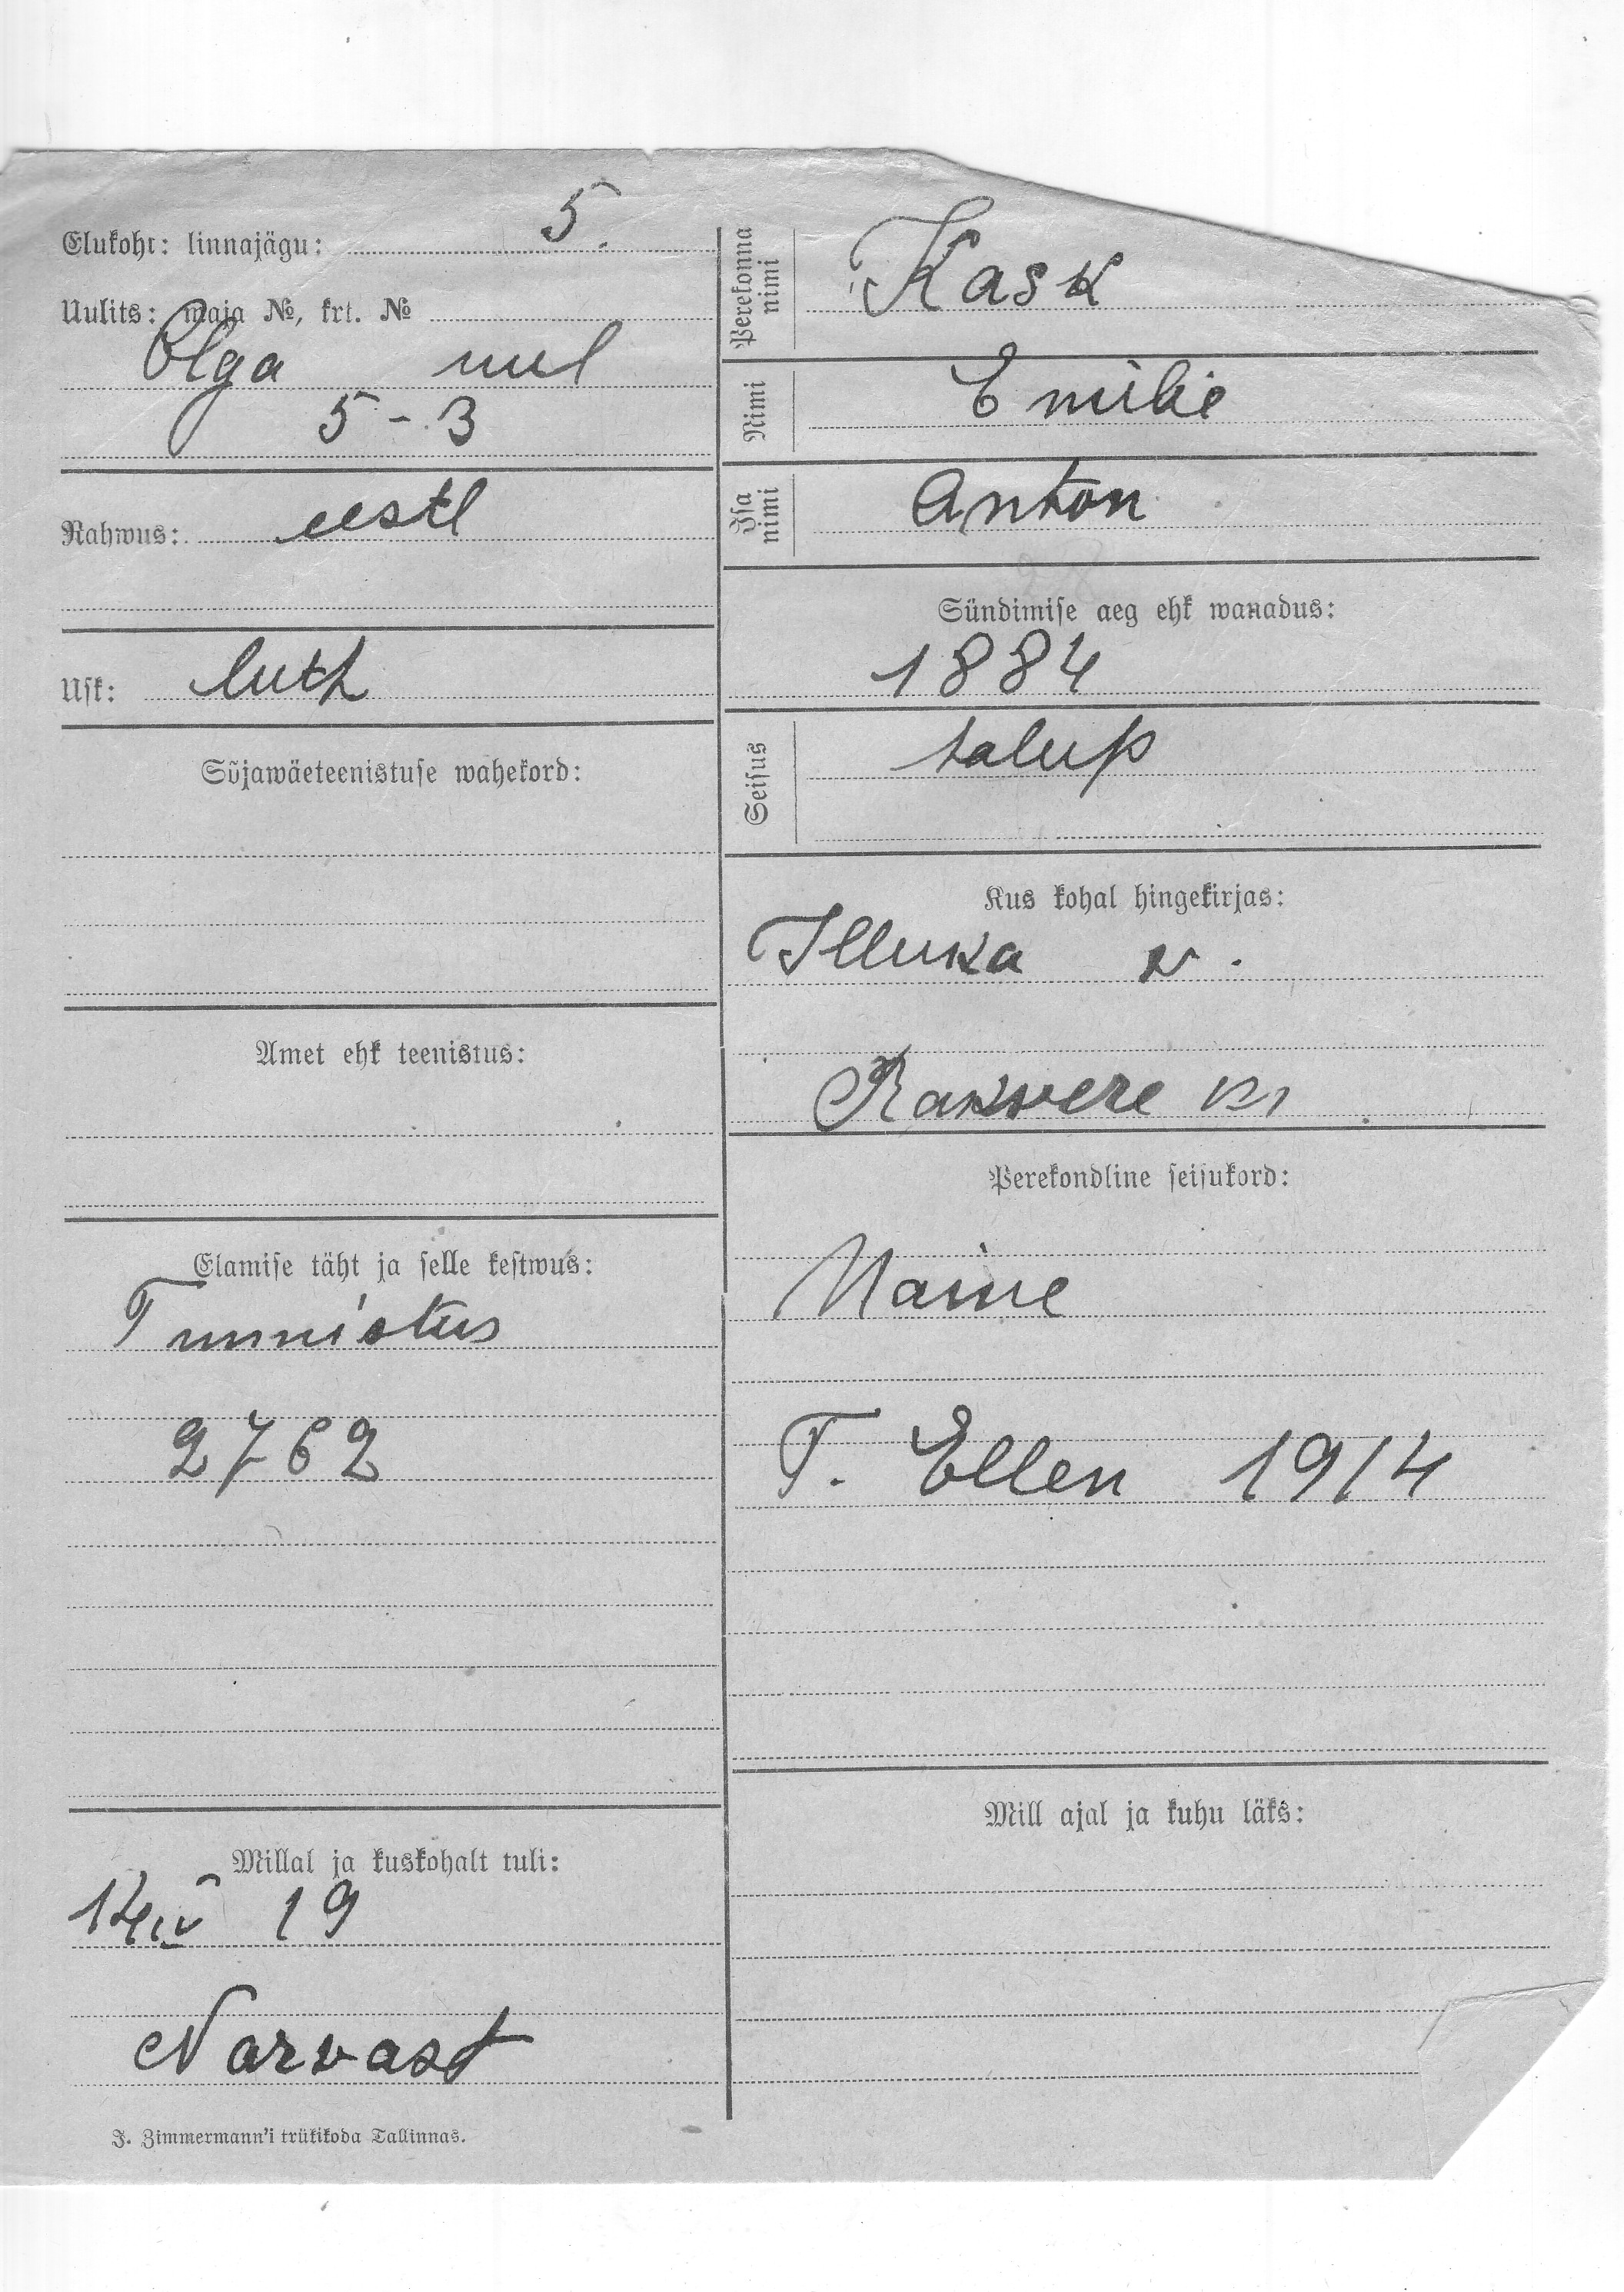 Elukoht: linnajägu: 5.
Uulits: maja №, krt. №
Olga uul
5-3
Rahwus: eestl
Usk: luth
Sõjawäeteenistuse wahekord:
Amet ehk teenistus:
Elamise täht ja selle kestwus:
Tunnistus
2762
Millal ja kuskohalt tuli:
14 IV 19
Narvast
J. Zimmermann'i trükikoda Tallinnas.
Perekonna nimi Kask
Nimi Emilie
Isa nimi Anton
Sündimise aeg ehk wanadus:
1884
Seisus talup
Kus kohal hingekirjas:
Illuka v.
Rakvere kr
Perekondline seisukord:
Naine
T. Ellen 1914
Mill ajal ja kuhu läks: